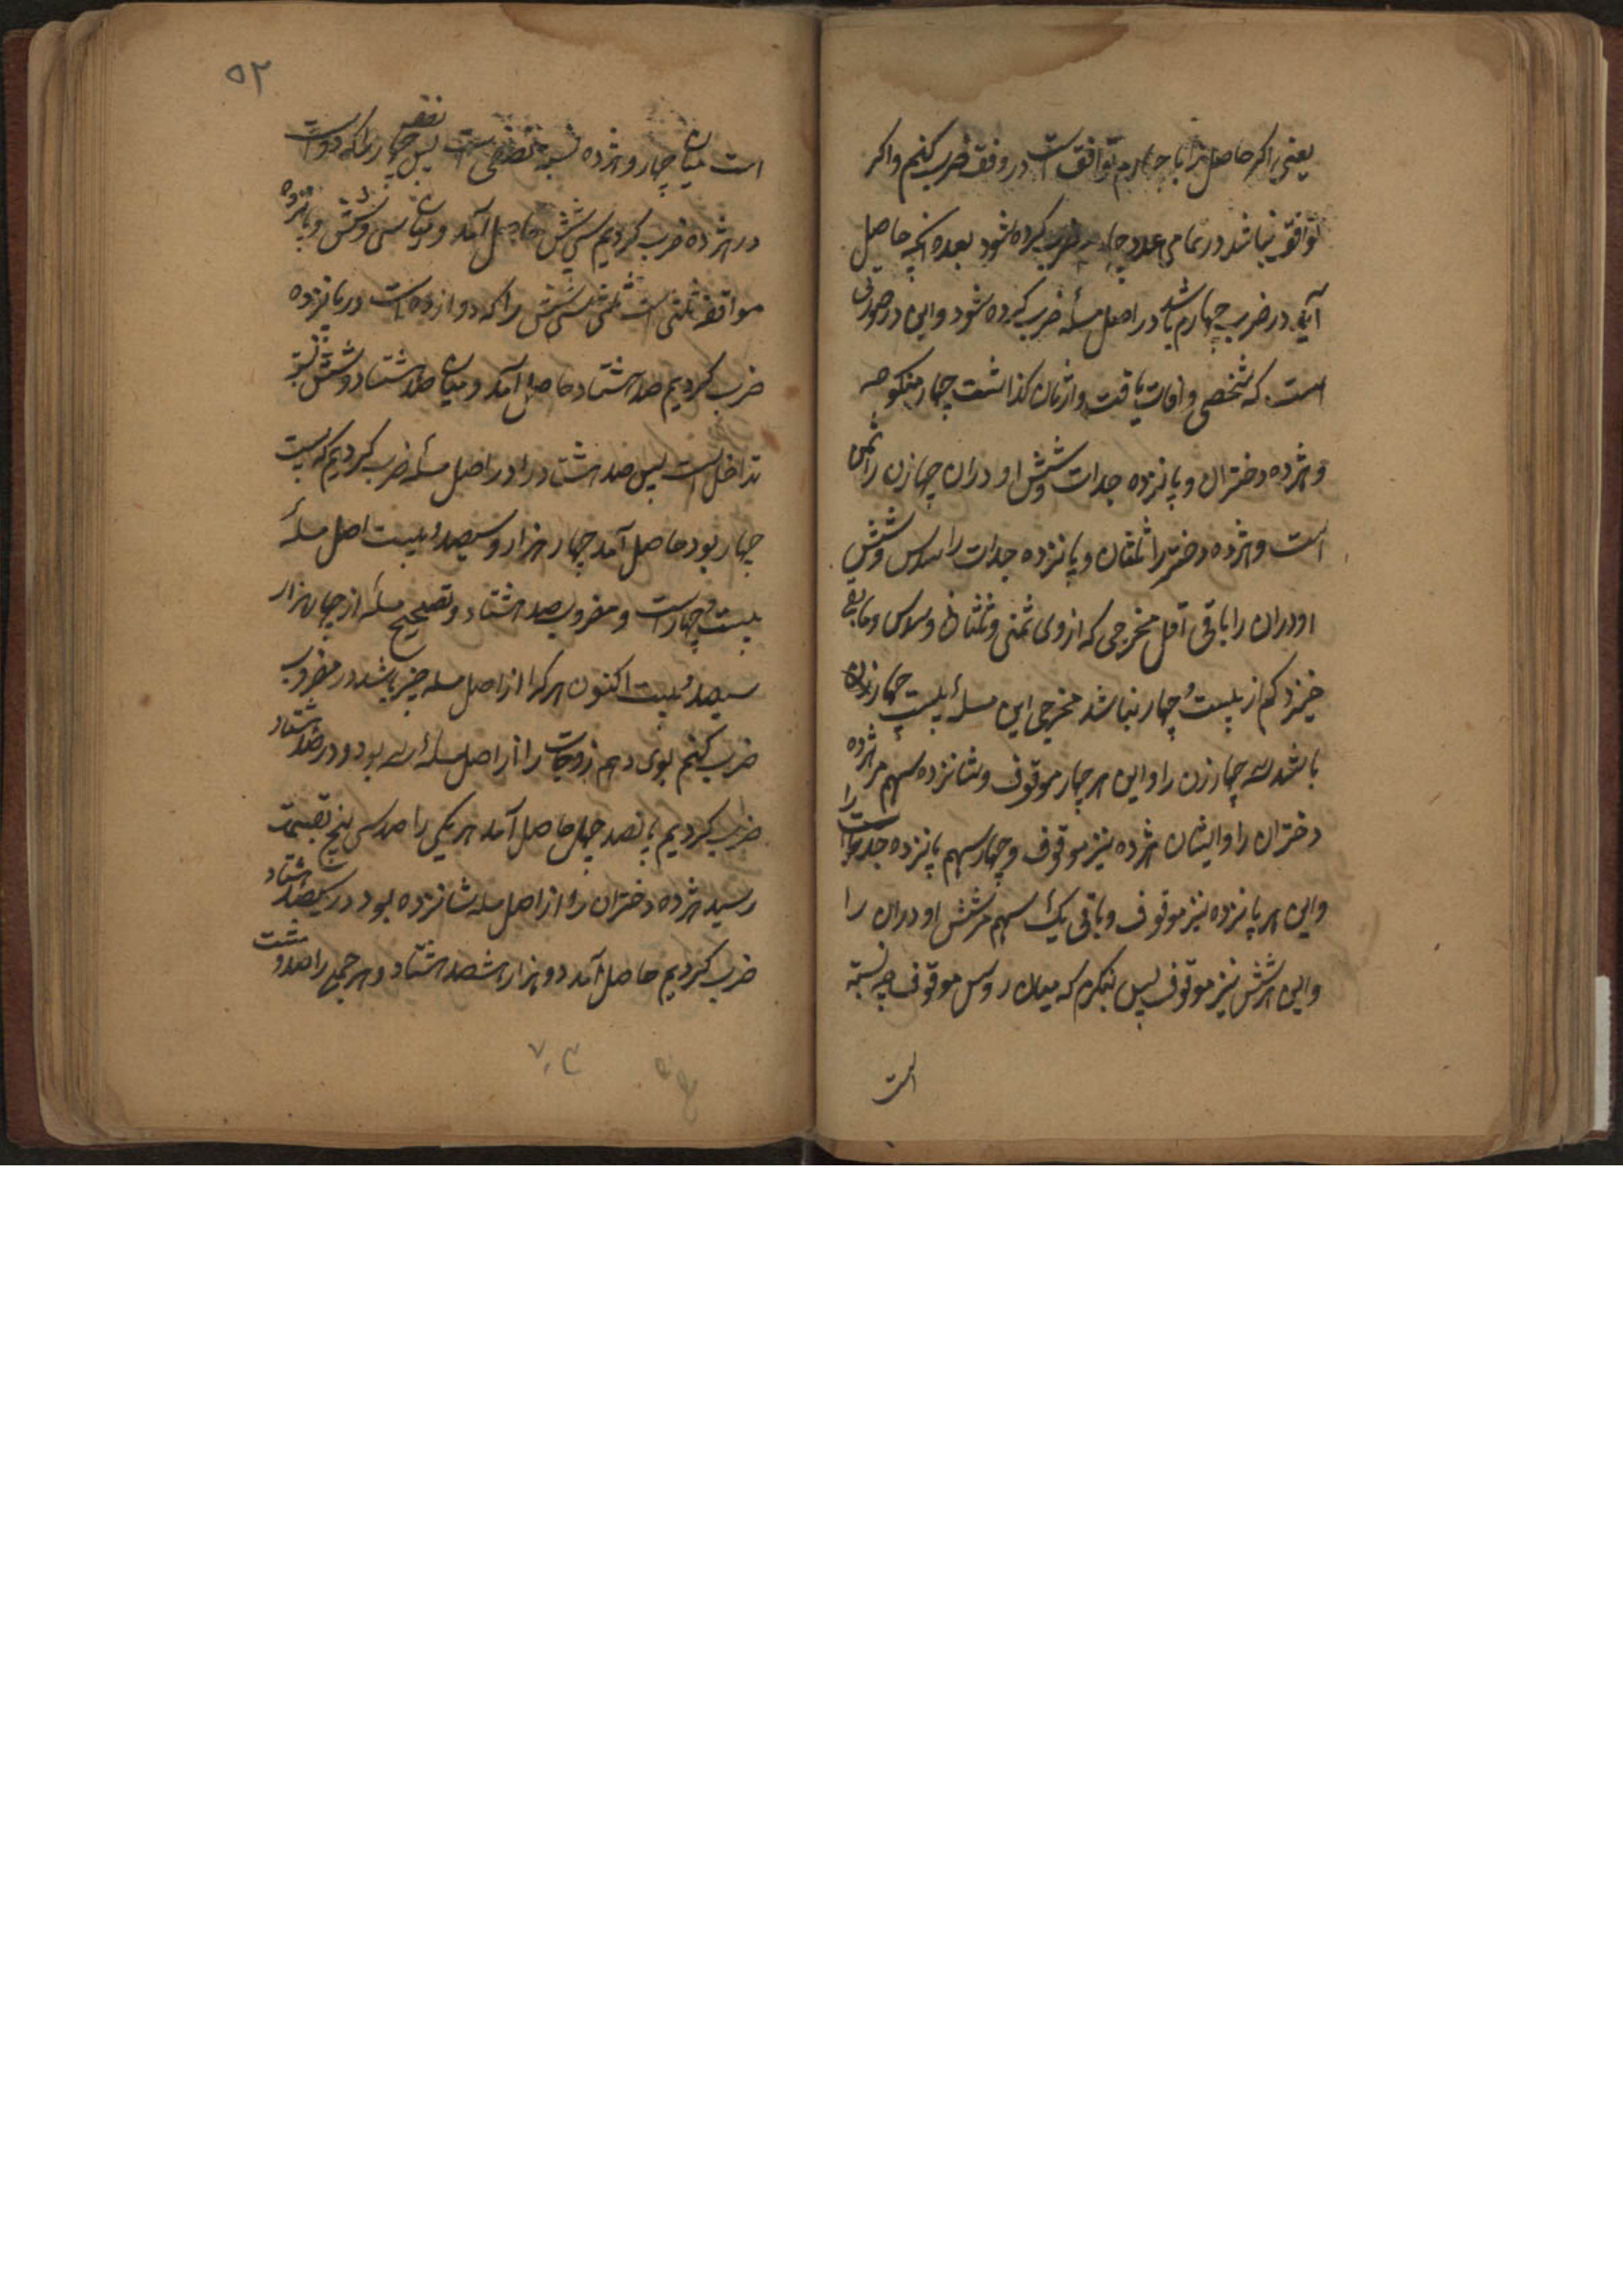 یعنی اکر حاصل را با چهارم توافق است در وفق ضرب کنیم و اکر
توافق نباشد در تمامی عدد چهارم ضرب کرده شود بعده آنچه حاصل
آید در ضرب چهارم باشد در اصل مسئله ضرب کرده شود و این در صورتی
است که شخصی وفات یافت و از زنان کذاشت چهار منکوحه
و هژده دختران و پانزده جدات و شش اودران چهار زن را ثمن
است و هژده دختر را ثلثان و پانزده جدات را سدس و شش
اودران را باقی اقل مخرجی که از وی ثمنی و ثلثان و سدس و مابقی
خیزد کم از بیست و چهار نباشد مخرجی این مسئله بیست چهار
باشد سه چهار زن را و این هر چهار موقوف و شانزده سهم مر هژده
دختران را و ایشان هژده نیز موقوف و چهار سهم پانزده جدات را
و این هر پانزده نیز موقوف و باقی یک سهم مر شش اودران را
و این هر شش نیز موقوف پس بنکرم که میان روس موقوف چه نسبة
است
۵۲
است میان چهار و هژده نسبة نصفی است پس نصف چهار را که دو است
در هژده ضرب کردیم سی شش حاصل آمد و میان سی و شش و پانزده
موافقة ثلثی است ثلثی سی شش را که دوازده است در پانزده
ضرب کردیم صد هشتاد حاصل آمد و میان صد هشتاد و شش نسبة
تداخل است پس صد هشتاد را در اصل مسئله ضرب کردیم که بیست
چهار بود حاصل آمد چهار هزار و سیصد و بیست اصل مسئله
بیست و چهار است و مضروب صد هشتاد و تصحیح مسئله از چهار هزار
سیصد و بیست اکنون هر کرا از اصل مسئله چیز باشد در مضروب
ضرب کنیم بوی دهیم زوجات را از اصل مسئله سه بود و در صد هشتاد
ضرب کردیم پانصد چهل حاصل آمد هر یکی را صد سی پنج تقسیمت
رسید هژده دختران را از اصل مسئله شانزده بود در یکصد هشتاد
ضرب کردیم حاصل آمد دو هزار هشصد هشتاد و هر جمع را صد و شست